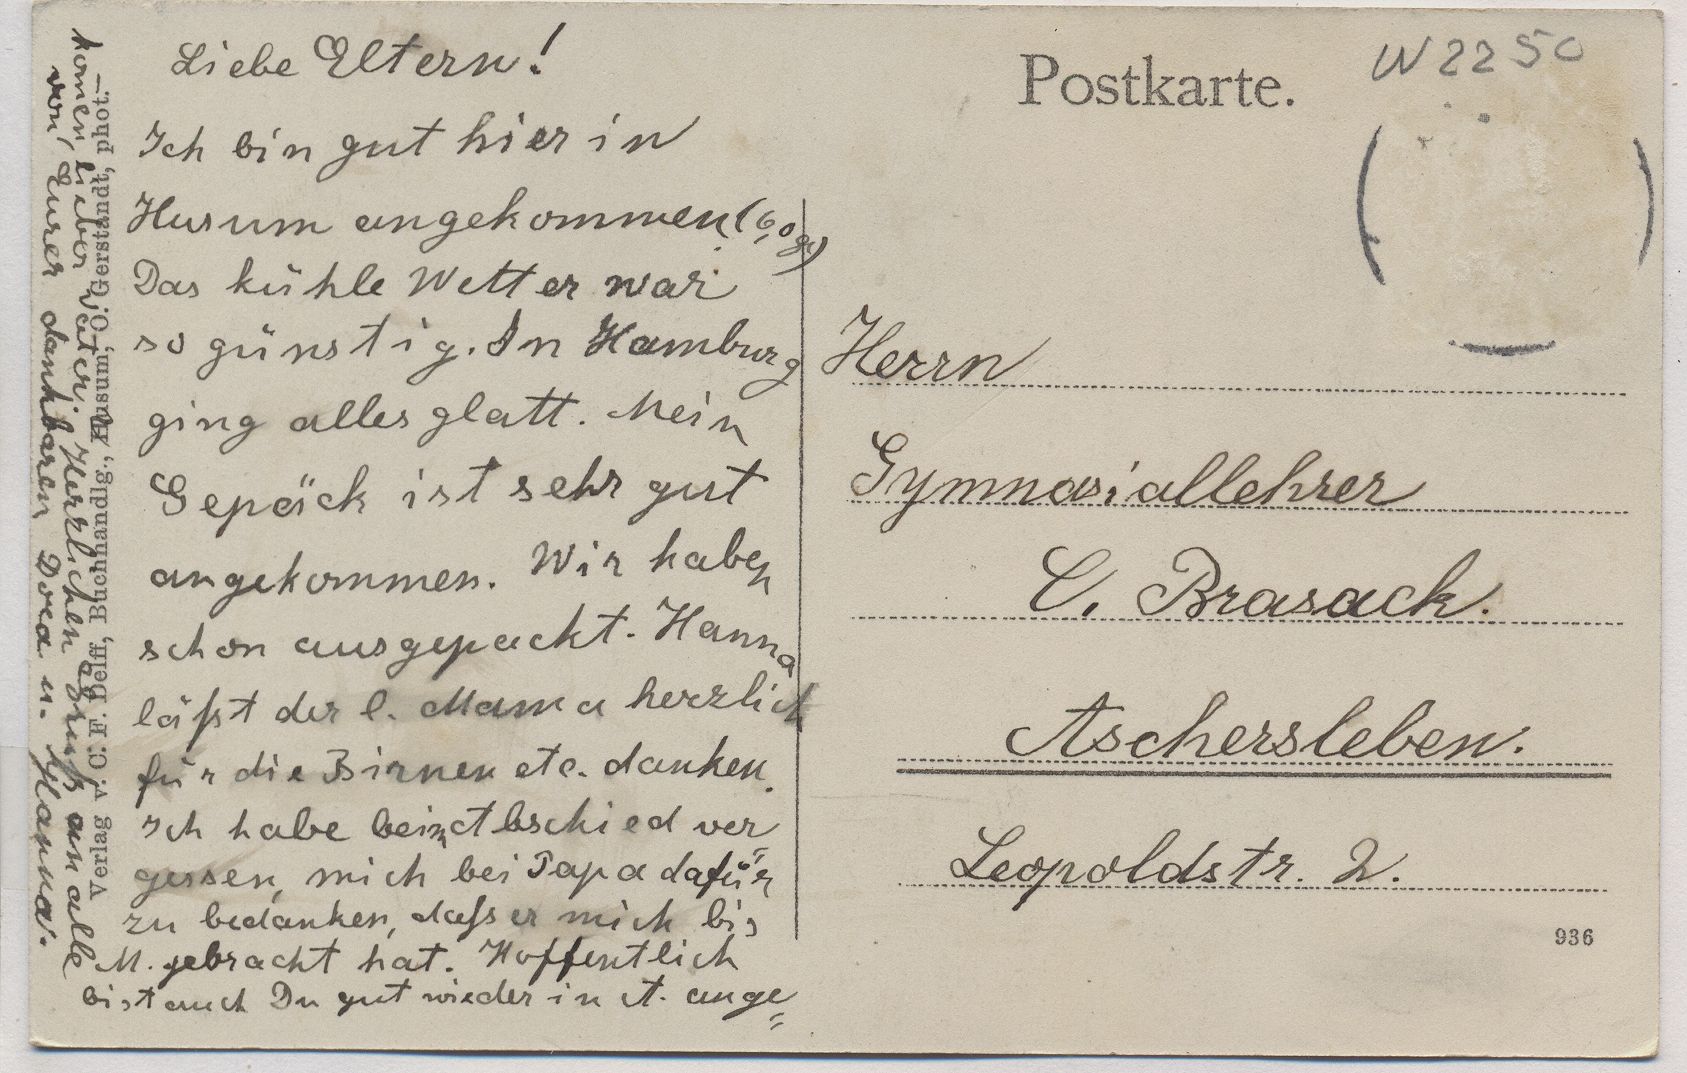 Liebe Eltern!
Ich bin gut hier in
Husum angekommen
Das kühle Wetter war
so günstig. In Hamburg
ging alles glatt. Mein
Gepäck ist sehr gut
angekommen. Wir haben
schon ausgepackt. Hanna
läßt der l. Mama herzlich
für die Birnen etc. danken.
Ich habe beim Abschied ver=
gessen, mich bei Papa dafür
zu bedanken, daſs er mich bis
M. gebracht hat. Hoffentlich
bist auch Du gut wieder in A. ange=
komen lieber Vater. Herzlichen Gruß an alle
von Eurer dankbaren Dora u. Hanna.
Verlag v. C. F. Delff, Buchhandlg., Husum, O. Gerstandt, phot.—
Postkarte.
W2250
Herrn
Gymnasiallehrer
C. Brasack.
Aschersleben.
Leopoldstr. 2.
936